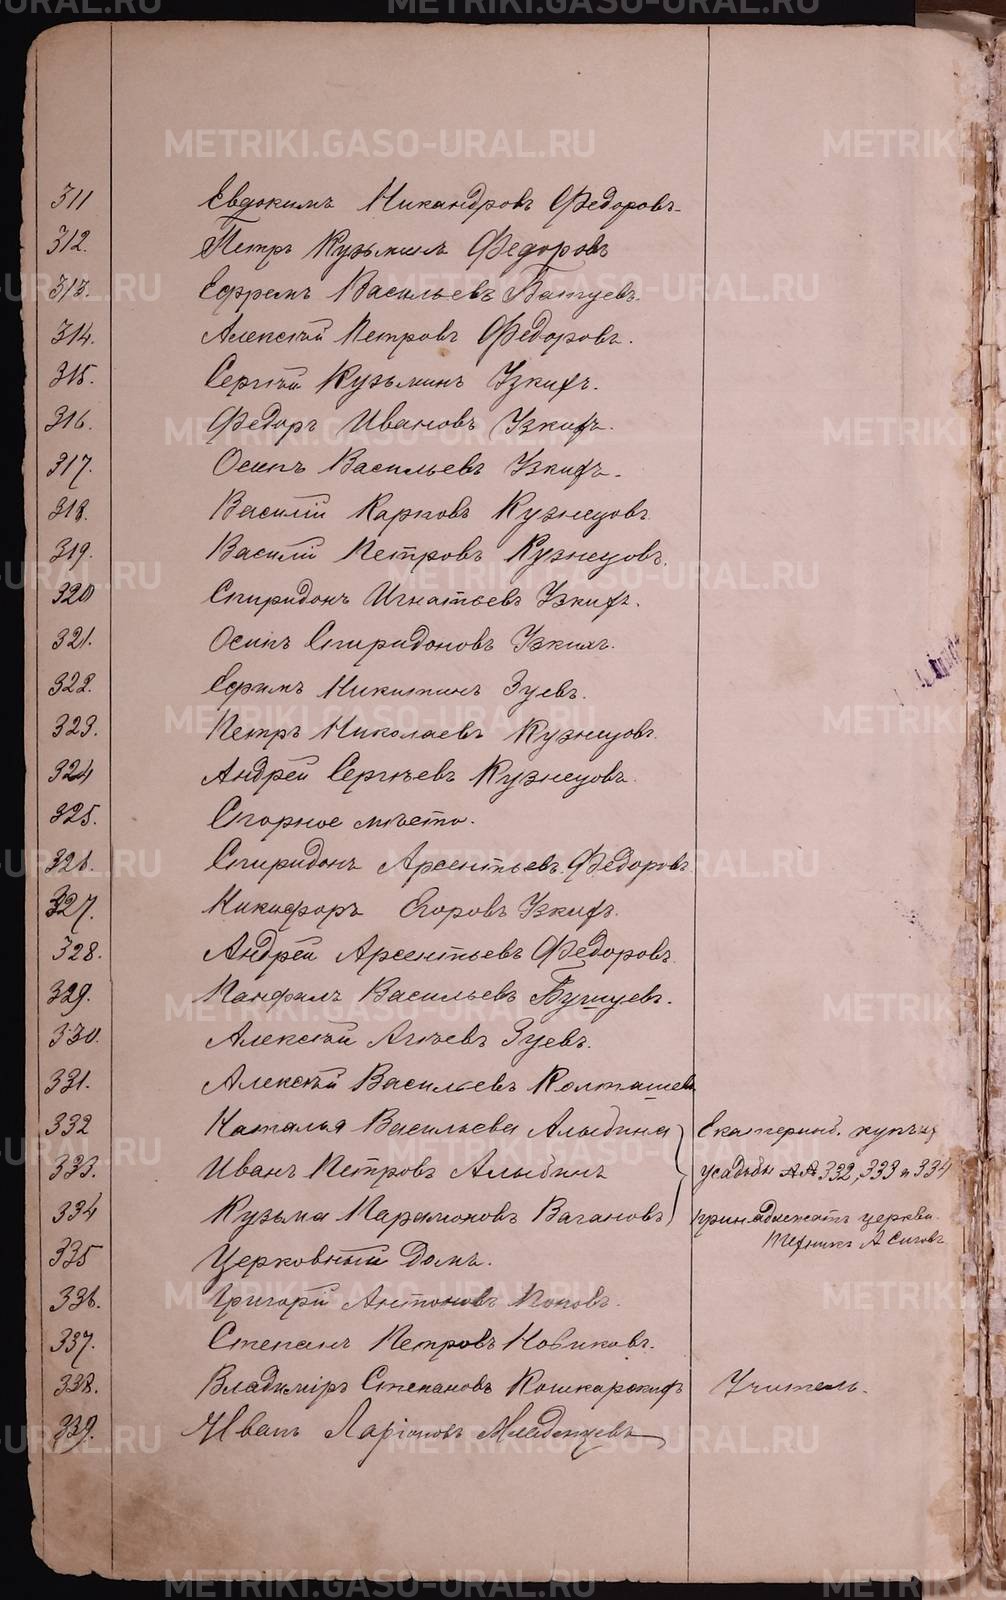 311 Евдокимъ Никандровъ Федоровъ
312. Петръ Кузьминъ Федоровъ
313. Ефремъ Васильевъ
314. Алексѣй Петровъ Федоровъ.
315. Сергѣй Кузьминъ Узкихъ.
316. Федоръ Ивановъ Узкихъ.
317. Осипъ Васильевъ Узкихъ.
318. Василій Карповъ Кузнецовъ
319. Василій Петровъ Кузнецовъ.
320 Спиридонъ Игнатьевъ Узкихъ.
321. Осипъ Спиридоновъ Узкихъ.
322. Ефимъ Никитинъ Зуевъ.
323. Петръ Николаевъ Кузнецовъ.
324 Андрей Сергѣевъ Кузнецовъ.
325. Спорное мѣсто.
326. Спиридонъ Арсентьевъ Федоровъ
327. Никифоръ Егоровъ Узкихъ.
328. Андрей Арсентьевъ Федоровъ.
329. Панфилъ Васильевъ Бушуевъ.
330. Алексѣй Агѣевъ Зуевъ.
331. Алексѣй Васильевъ Колташевъ
332 Наталья Васильева Алыбина Екатеринб. купъ
333. Иванъ Петровъ Алыбинъ усадьбы №№ 332, 333 и 334
334 Кузьма Парамоновъ Вагановъ принадлежатъ церкви.
Техникъ А Сиговъ
335 Церковный Домъ.
336. Григорій Антоновъ Поповъ.
337. Степанъ Петровъ Новиковъ.
338. Владиміръ Степановъ Кошкарскихъ Учитель.
339. Иванъ Ларіоновъ Младенцевъ
METRIKI.GASO-URAL.RU